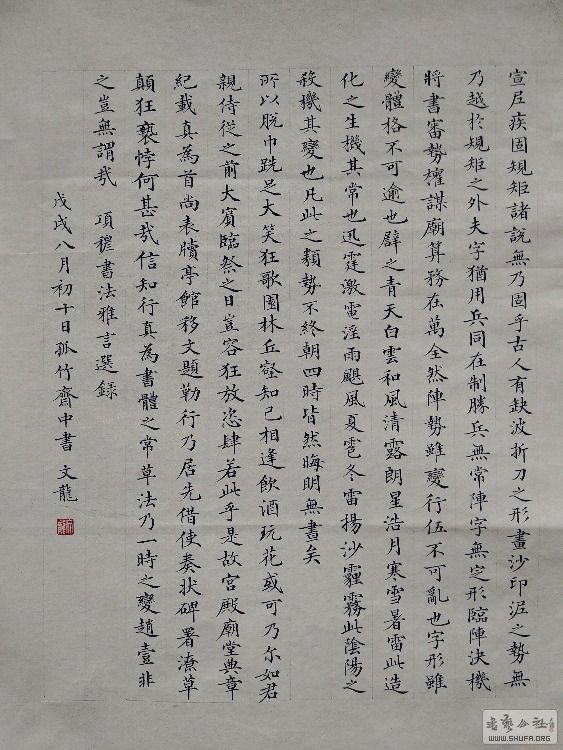 宣尼疾固規矩諸說無乃固乎古人有缺波折刀之形畫沙印泥之勢無
乃越於規矩之外夫字猶用兵同在制勝兵無常陣字無定形臨陣決機
將書審勢權謀廟算務在萬全然陣勢雖變行伍不可亂也字形雖
變體格不可逾也辟之青天白雲和風清露朗星浩月寒雪暑雷此造
化之生機其常也迅霆激電淫雨颶風夏雹冬雷揚沙霾霧此陰陽之
殺機其變也凡此之類勢不終朝四時皆然晦明無晝矣
所以脫巾跣足大笑狂歌園林丘壑知己相逢飲酒玩花或可乃尔如君
親侍從之前大賓臨祭之日豈容狂放恣肆若此乎是故宮殿廟堂典章
紀載真為首尚表牘亭館移文題勒行乃居先借使奏狀碑署潦草
顛狂褻悖何甚哉信知行真為書體之常草法乃一時之變趙壹非
之豈無謂哉 項穆書法雅言選錄
戊戌八月初十日孤竹齋中書 文龍
書藝公社
WWW.SHUFA.ORG